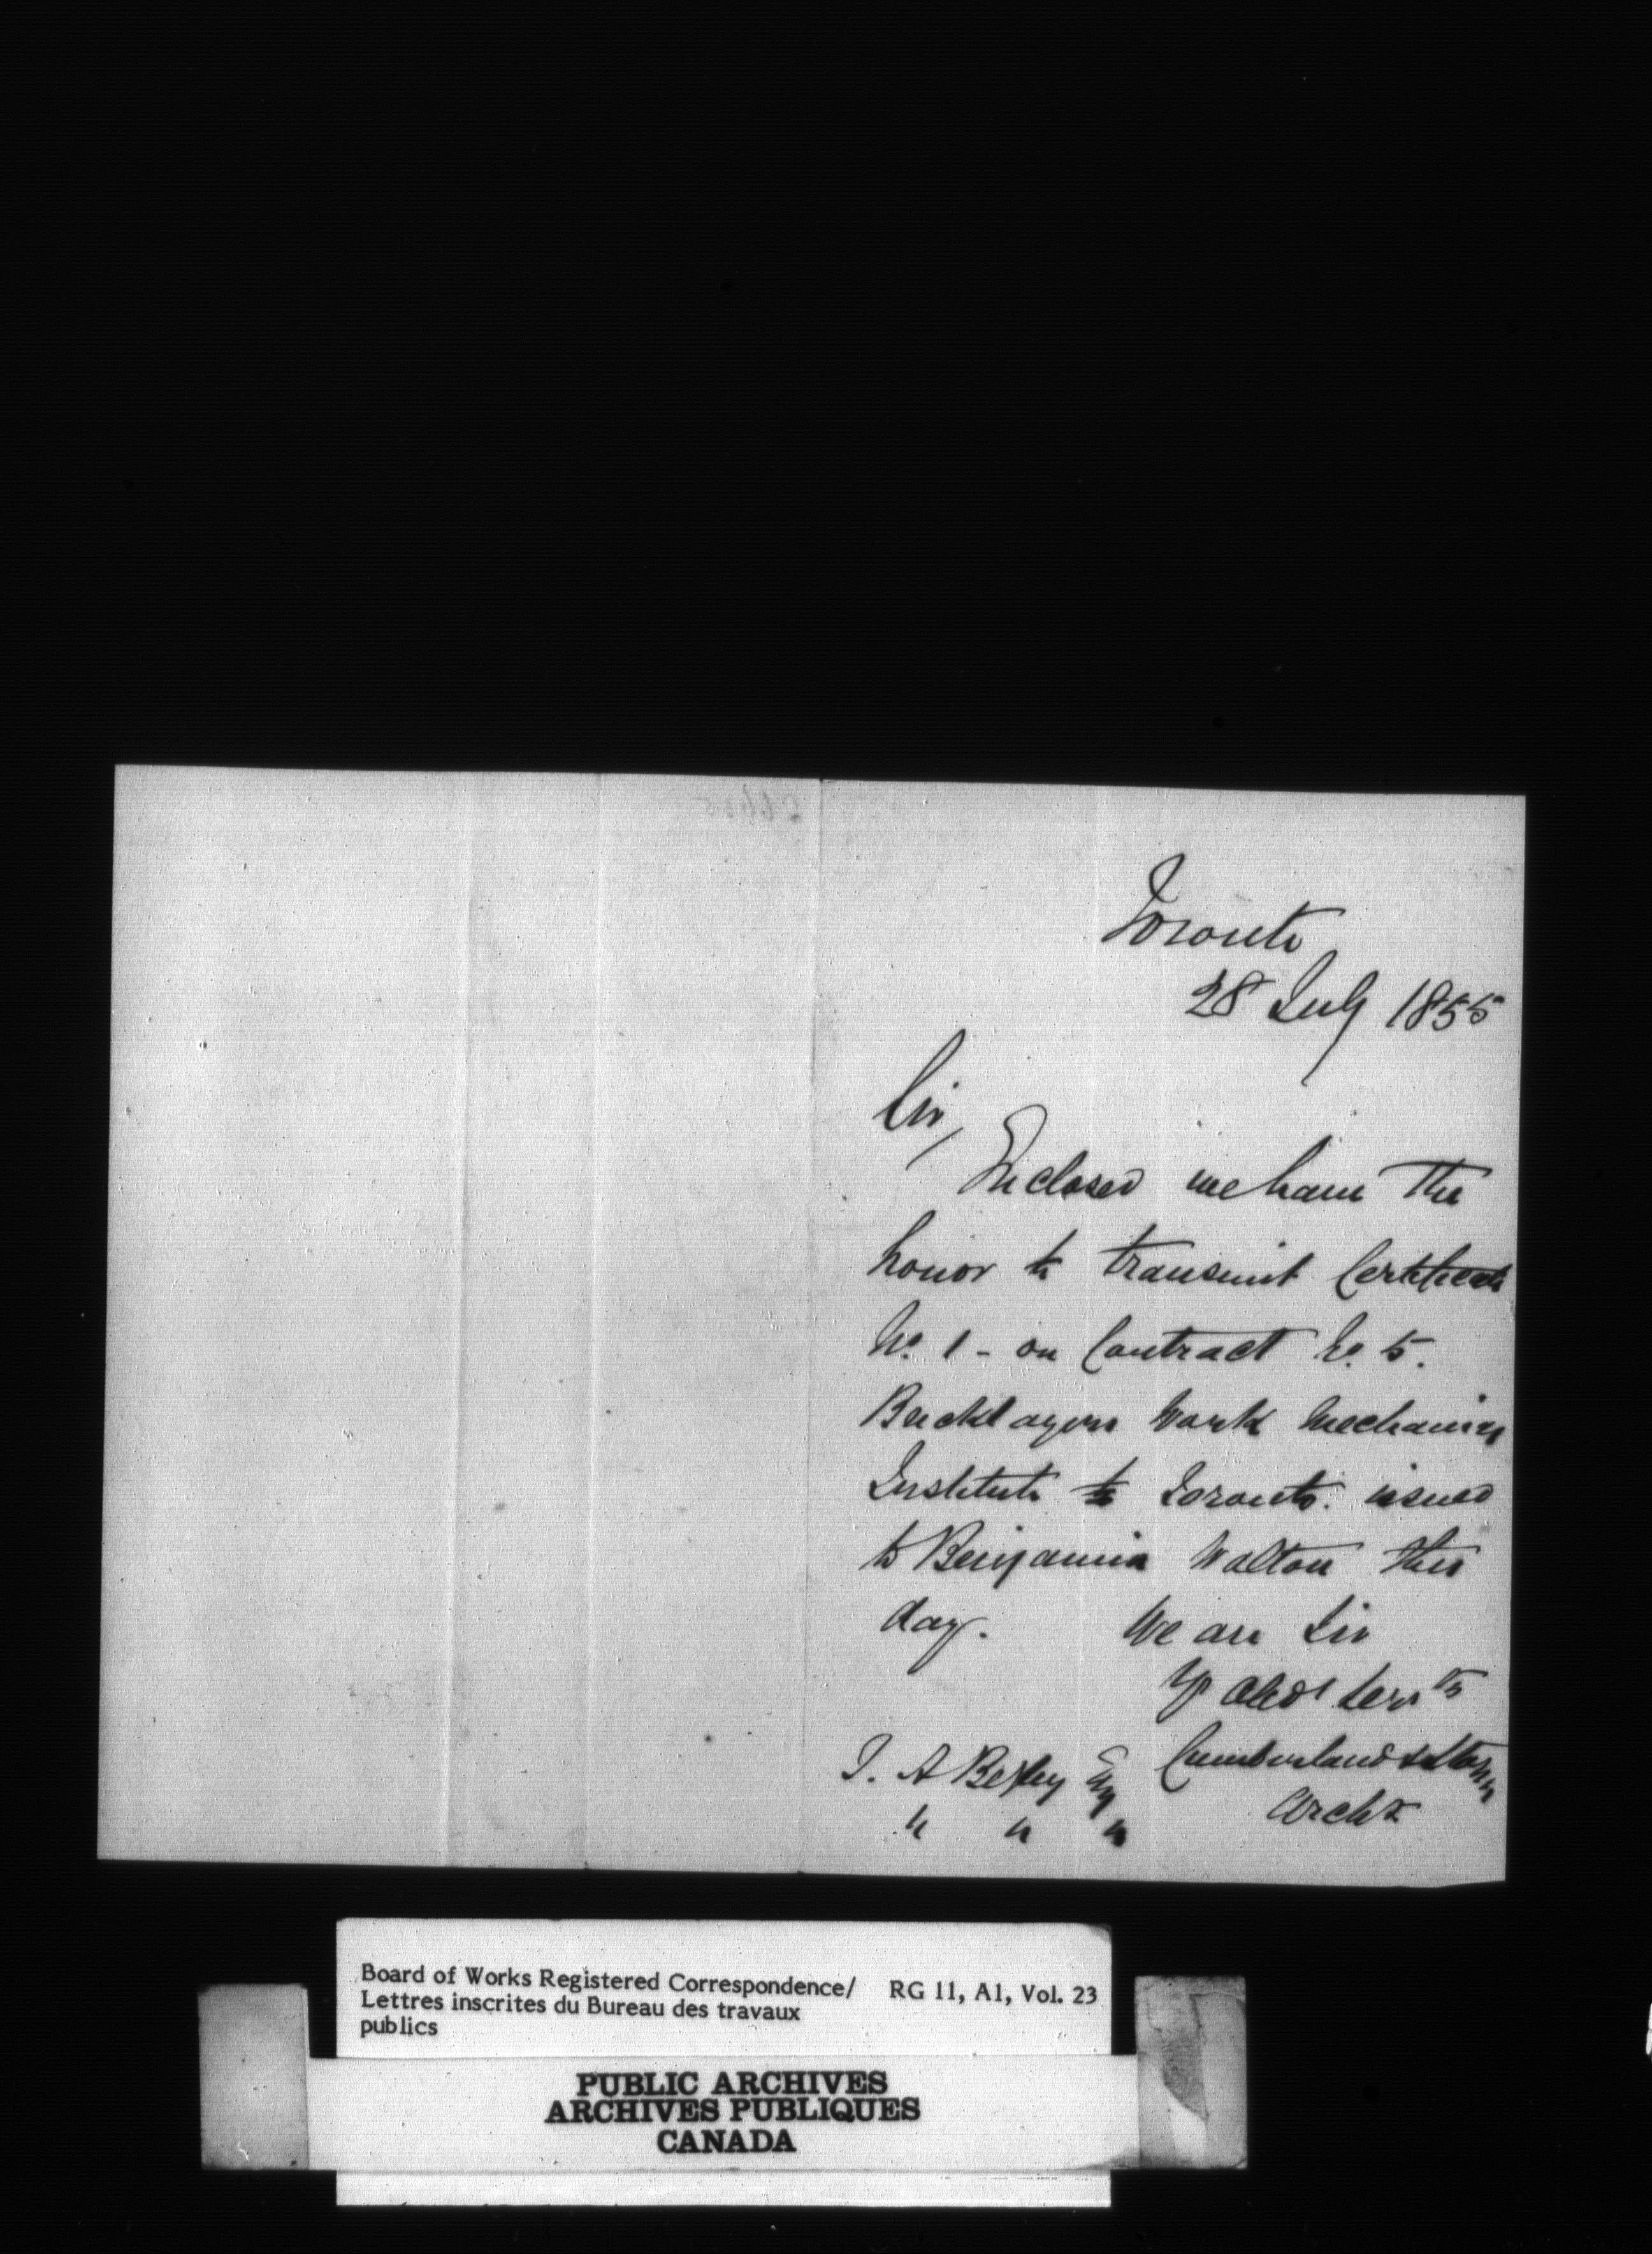 Toronto
28 July 1855
Sir,
Enclosed we have the
honor to transmit Certificate
No. 1 - on Contract No. 5.
Bricklayers Work Mechanics
Institute Toronto. issued
to Benjamin Walton this
day. We are Sir
Yr Obedt Servts
Cumberland & Storm
Archts
T. A Begley Esq
" " "
Board of Works Registered Correspondence/ RG 11, A1, Vol. 23
Lettres inscrites du Bureau des travaux
publics
PUBLIC ARCHIVES
ARCHIVES PUBLIQUES
CANADA